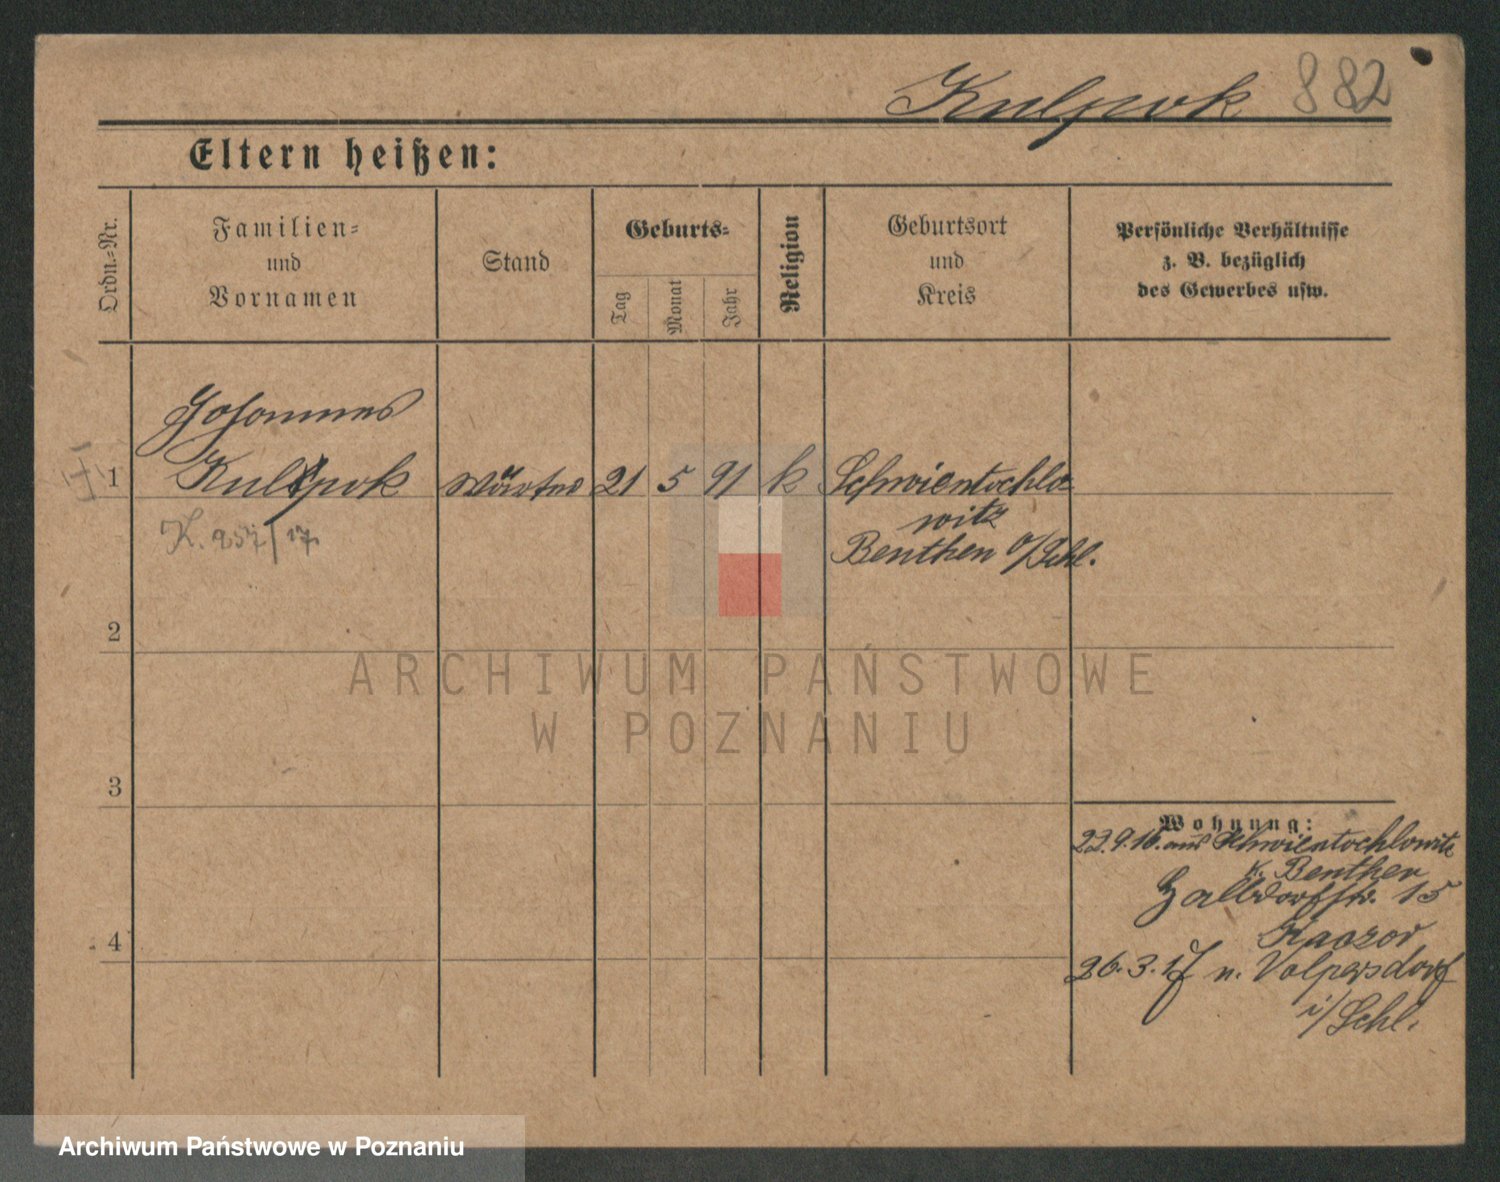 Kulpok 882
Eltern heißen:
Ordn.-Nr.
Familien-
und
Vornamen
Stand
Geburts-
Tag
Monat
Jahr
Religion
Geburtsort
und
Kreis
Persönliche Verhältnisse
z. B. bezüglich
des Gewerbes usw.
Johannes
1 Kulpok Wärter 21 5 91 k Schwientochlo
witz
Beuthen O/Schl.
K. 257/17
2
3
4
Wohnung:
22.9.16. aus Schwientochlowitz
K. Beuthen
Halldorfstr. 15
Kaczor
26.3.17 n. Volpersdorf
i/Schl.
ARCHIWUM PAŃSTWOWE
W POZNANIU
Archiwum Państwowe w Poznaniu